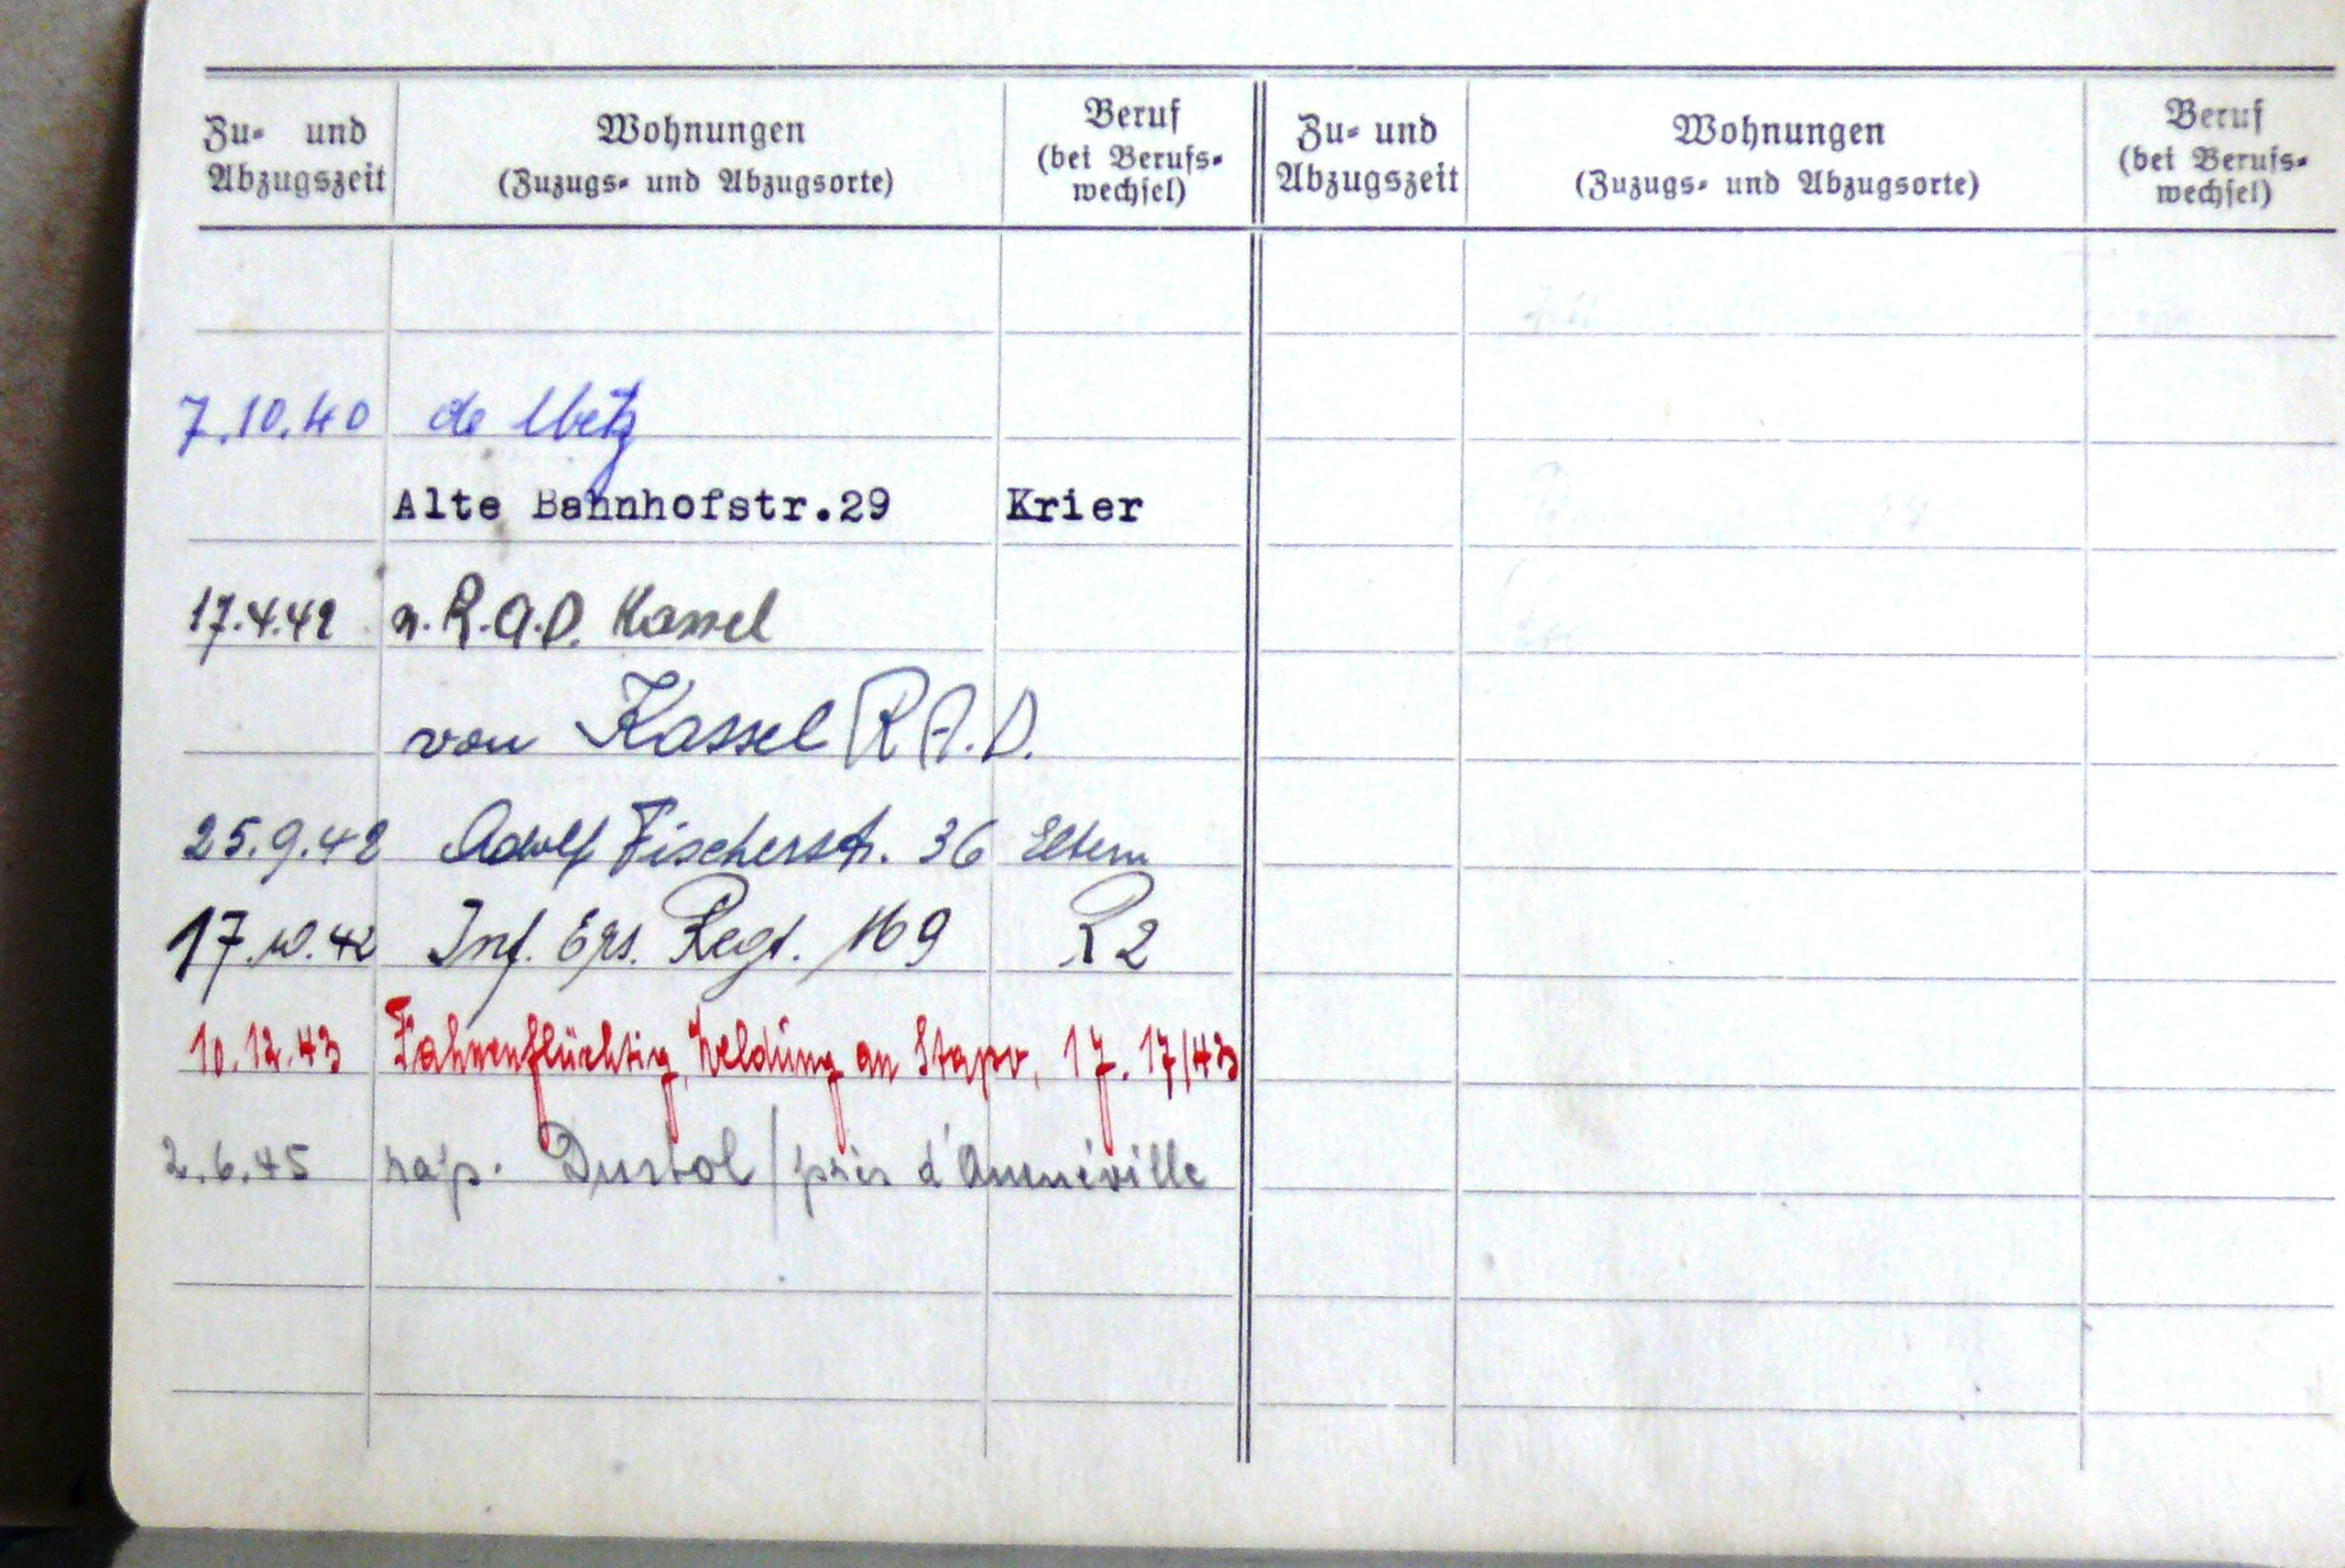 Zu- und Abzugszeit
Wohnungen
(Zuzugs- und Abzugsorte)
Beruf
(bei Berufs-
wechsel)
Zu- und
Abzugszeit
Wohnungen
(Zuzugs- und Abzugsorte)
Beruf
(bei Berufs-
wechsel)
7.10.40 de Metz
Alte Bahnhofstr.29 Krier
17.4.42 n. R.A.D. Kassel
von Kassel R.A.D.
25.9.42 Adolf Fischerstr. 36 Eltern
17.10.42 Inf. Ers. Regt. 169 R2
10.12.43 Fahnenflüchtig, Meldung an Stapo, 17. 17/43
2.6.45 rap. / près d'Amnéville